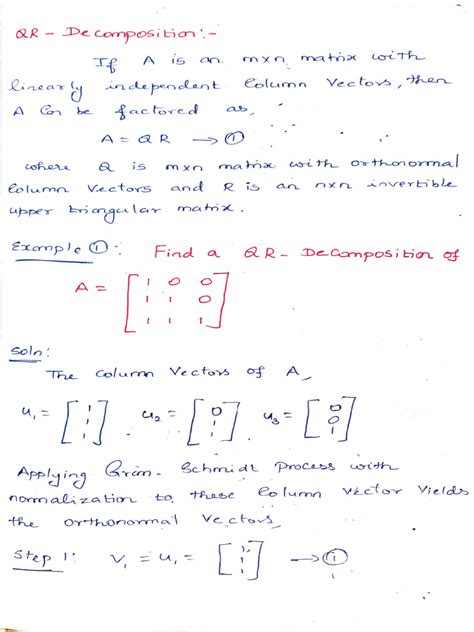 QR - Decomposition:-
If A is an mxn matrix with
linearly independent Column Vectors, then
A Can be factored as,
A = QR → ①
where Q is mxn matrix with orthonormal
Column Vectors and R is an nxn invertible
upper triangular matrix.
Example ①: Find a QR - Decomposition of
A = [1 0 0
1 1 0
1 1 1]
Soln:
The Column Vectors of A,
u₁ = [1 1 1] u₂ = [0 1 1] u₃ = [0 0 1]
Applying Gram - Schmidt Process with
normalization to these Column Vector Yields
the orthonormal Vectors,
Step 1: V₁ = u₁ = [1 1 1] → ①